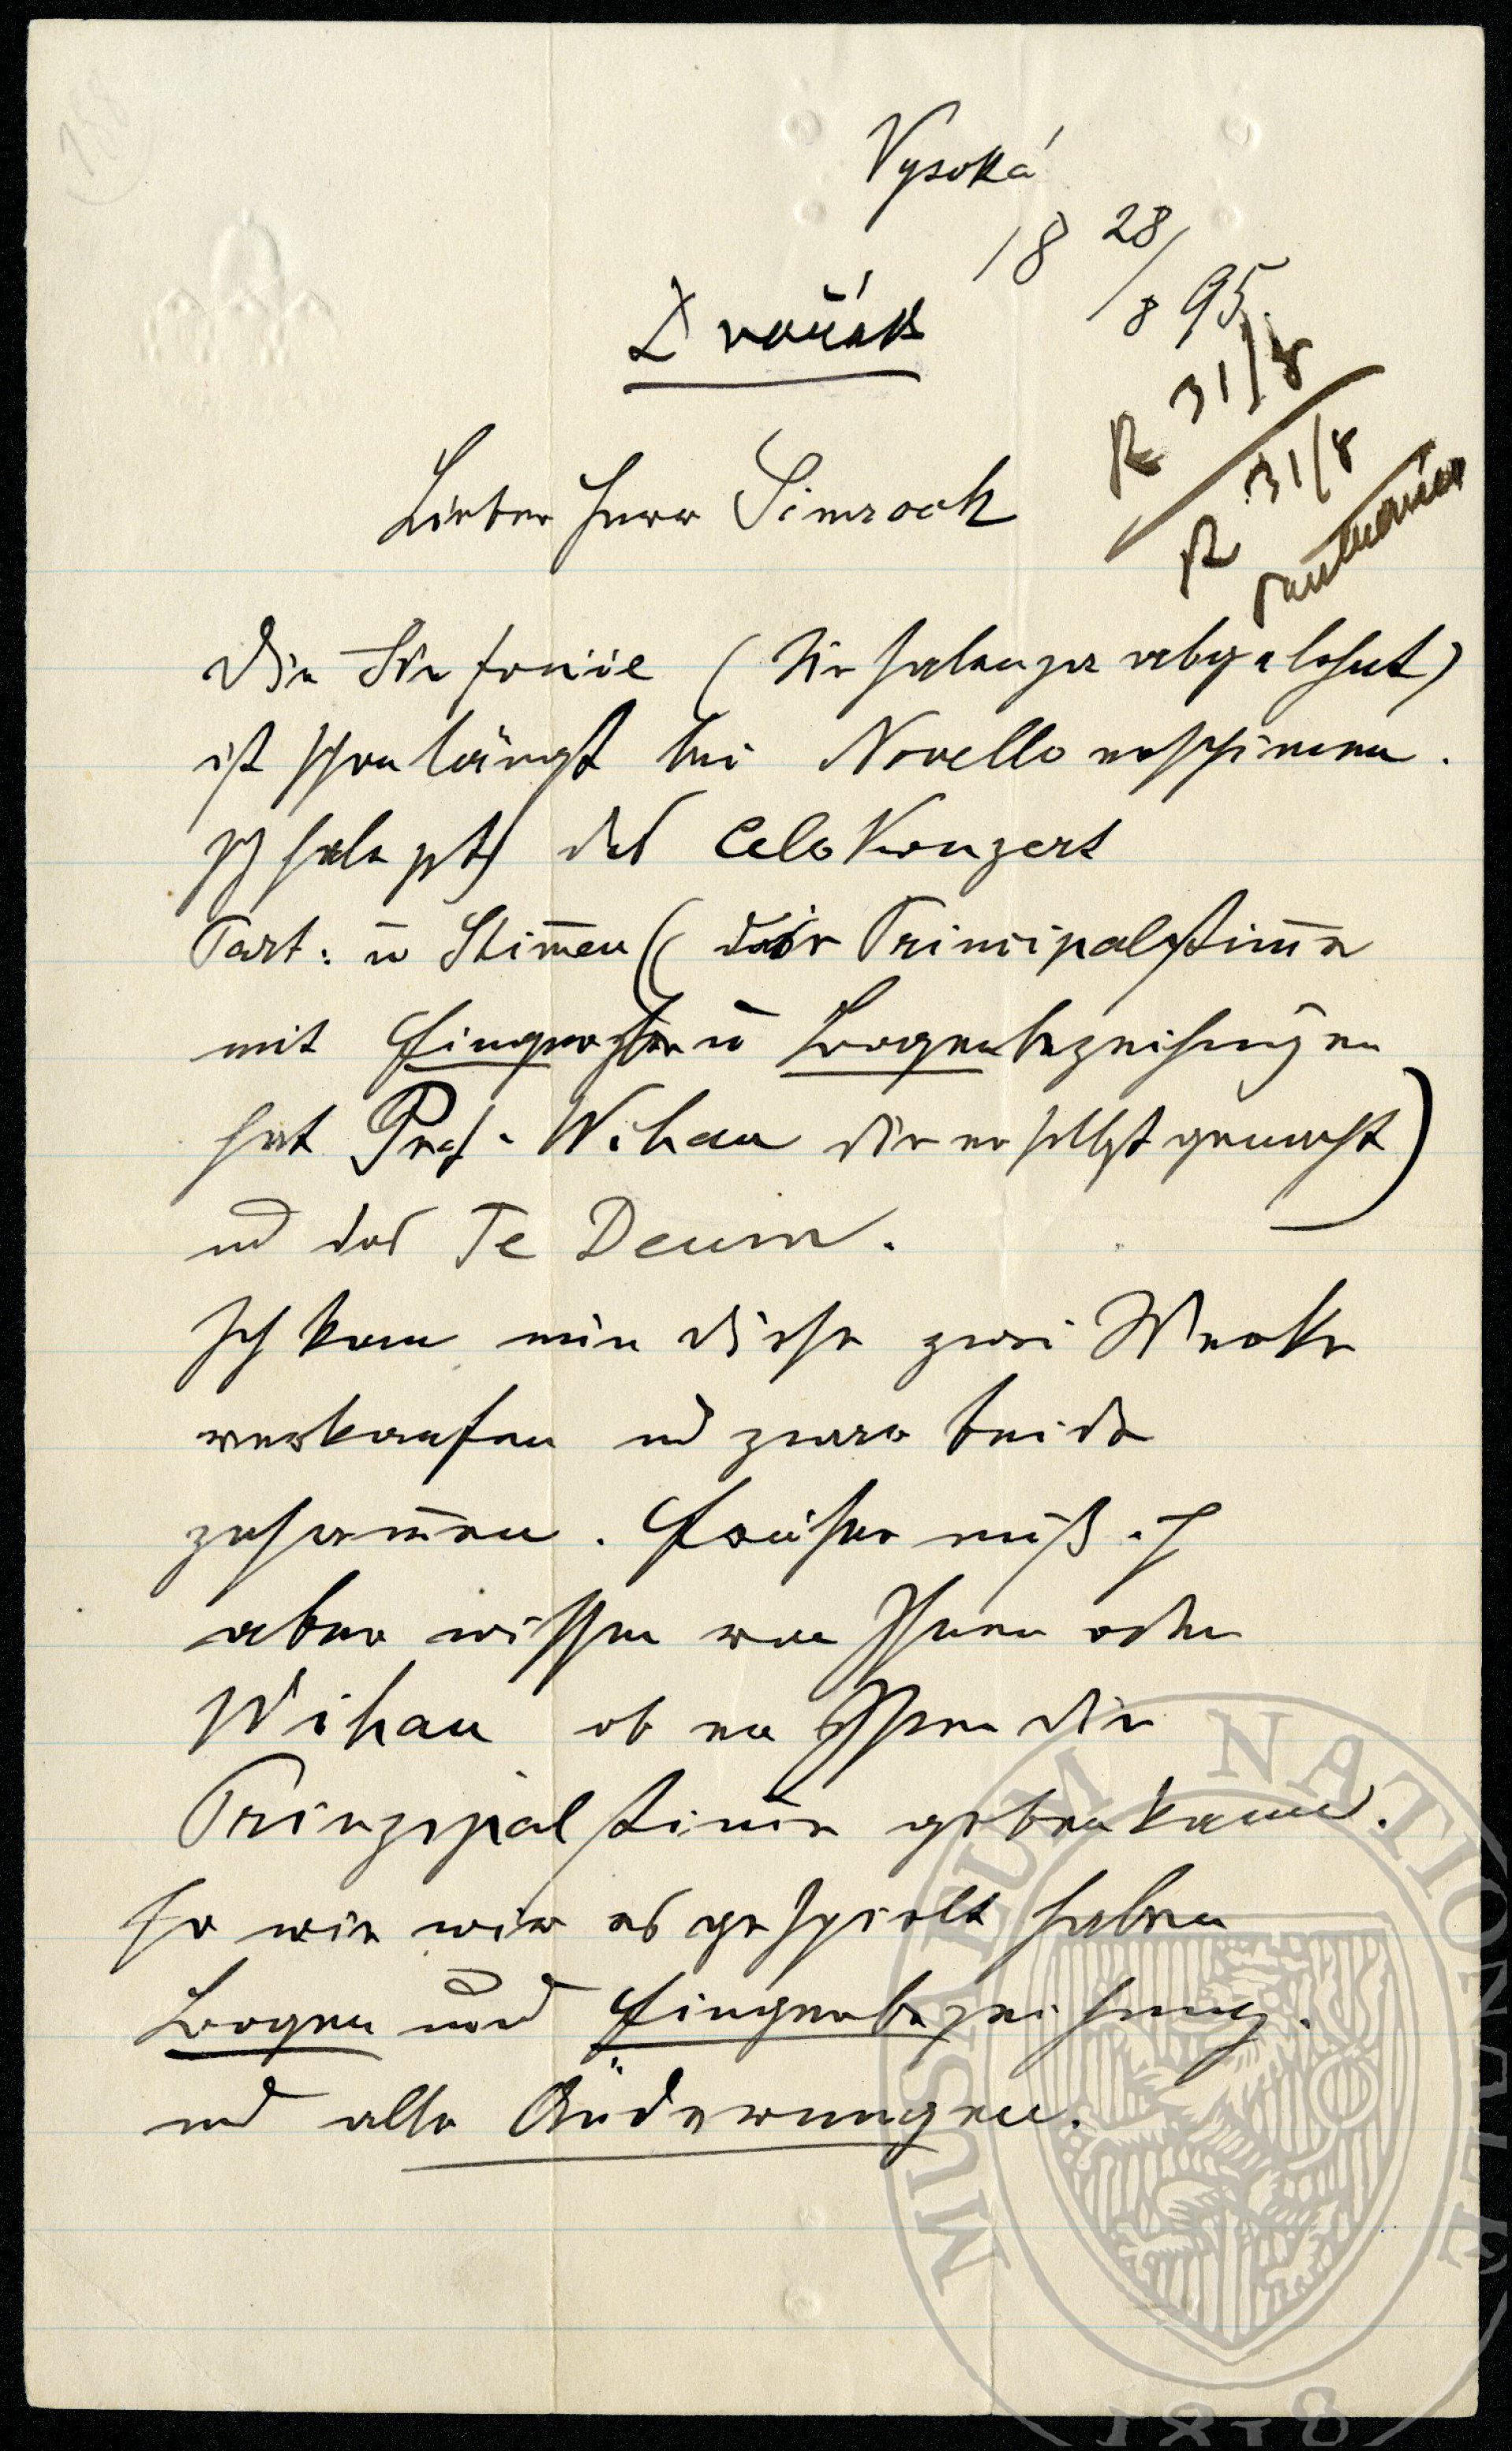 Vysoká
18 28/8 95.
Dvořák
R 31/8
R 31/8
Lieber Herr Simrock
Die Sinfonie (Sie haben ja abgelehnt)
ist schon längst bei Novello erschienen.
Ich habe jetzt das Celo Konzert
Part: u Stimmen (die Principalstimme
mit Fingersatz u Bogenbezeichnungen
hat Prof. Wihan die er selbst gemacht)
und das Te Deum.
Ich kann nur diese zwei Werke
verkaufen und zwar beide
zusammen. Früher muß ich
aber wissen von Ihnen oder
Wihan ob er Ihnen die
Prinzipalstimme geben kann.
so wie wir es gespielt haben
Bogen und Fingerbezeichnung.
und alle Änderungen.
MUSAEUM NATIONALE
1818